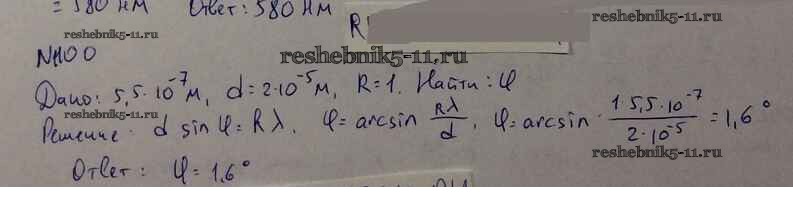 = 580 нм Ответ: 580 нм
reshebnik5-11.ru
R
reshebnik5-11.ru
N1100
reshebnik5-11.ru
Дано: 5,5·10⁻⁷м, d=2·10⁻⁵м, R=1. Найти: φ
Решение: d sin φ = Rλ, φ=arcsin Rλ/d, φ=arcsin · 1·5,5·10⁻⁷/2·10⁻⁵ = 1,6°
reshebnik5-11.ru
reshebnik5-11.ru
Ответ: φ = 1,6°